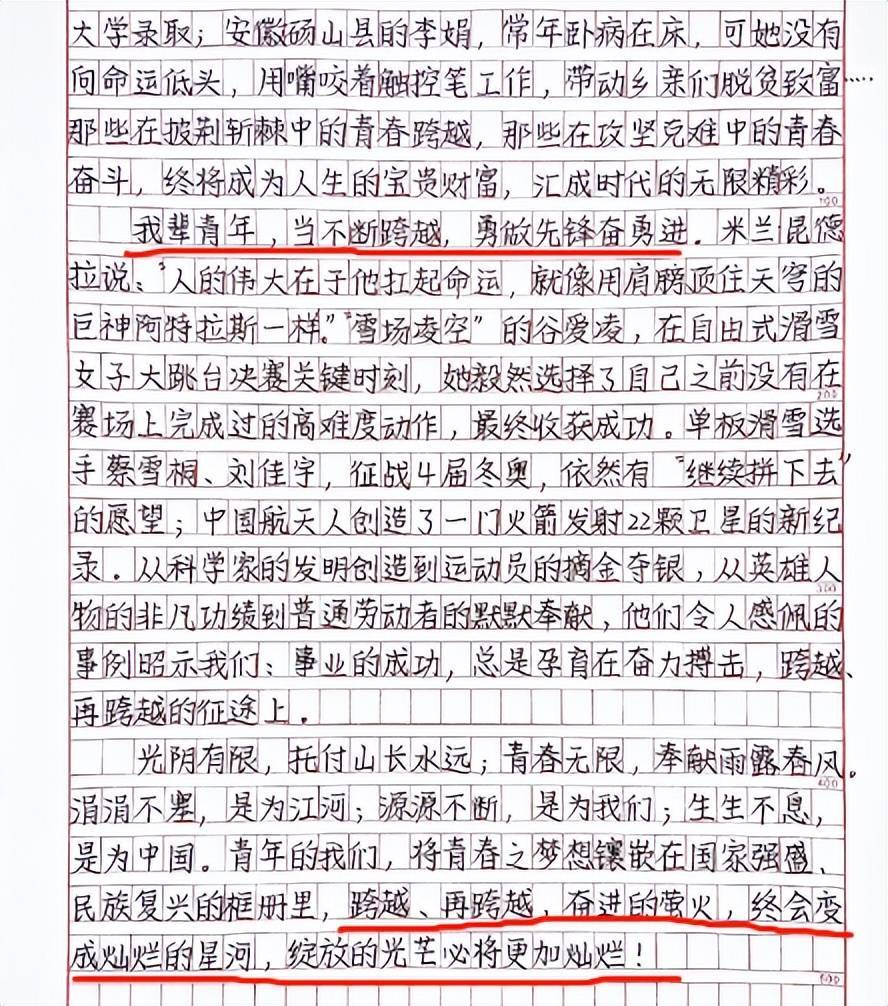 大学录取；安徽砀山县的李娟，常年卧病在床，可她没有
向命运低头，用嘴咬着触控笔工作，带动乡亲们脱贫致富……
那些在披荆斩棘中的青春跨越，那些在攻坚克难中的青春
奋斗，终将成为人生的宝贵财富，汇成时代的无限精彩。
我辈青年，当不断跨越，勇做先锋奋勇进．米兰昆德
拉说："人的伟大在于他扛起命运，就像用肩膀顶住天穹的
巨神阿特拉斯一样。""雪场凌空"的谷爱凌，在自由式滑雪
女子大跳台决赛关键时刻，她毅然选择了自己之前没有在
200
赛场上完成过的高难度动作，最终收获成功。单板滑雪选
手蔡雪桐、刘佳宇，征战4届冬奥，依然有"继续拼下去"
的愿望；中国航天人创造了一门火箭发射22颗卫星的新纪
录．从科学家的发明创造到运动员的摘金夺银，从英雄人
物的非凡功绩到普通劳动者的默默奉献，他们令人感佩的
事例昭示我们：事业的成功，总是孕育在奋力搏击，跨越、
再跨越的征途上．
光阴有限，托付山长水远；青春无限，奉献雨露春风。
涓涓不塞，是为江河；源源不断，是为我们；生生不息，
是为中国。青年的我们，将青春之梦想镶嵌在国家强盛、
民族复兴的框册里，跨越、再跨越，奋进的萤火，终会变
成灿烂的星河，绽放的光芒必将更加灿烂！